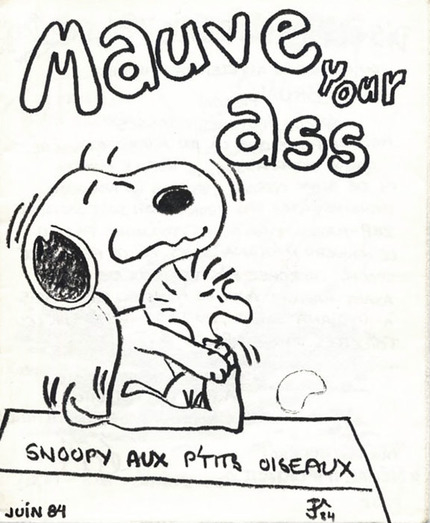 Mauve
your
ass
SNOOPY AUX P'TITS OISEAUX
JUIN 84